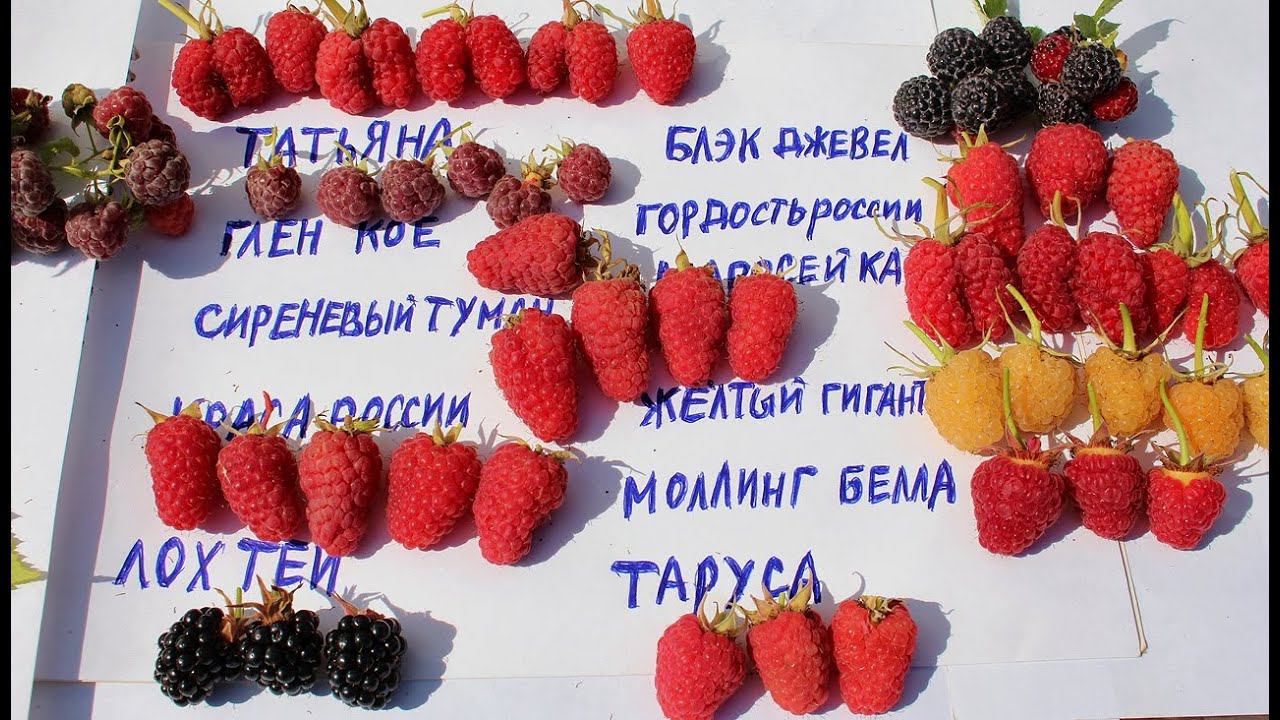 ТАТЬЯНА
ГЛЕН КОЕ
СИРЕНЕВЫЙ ТУМАН
КРАСА РОССИИ
ЛОХ ТЕЙ
БЛЭК ДЖЕВЕЛ
ГОРДОСТЬ РОССИИ
ЖЕЛТЫЙ ГИГАНТ
МОЛЛИНГ БЕЛЛА
ТАРУСА